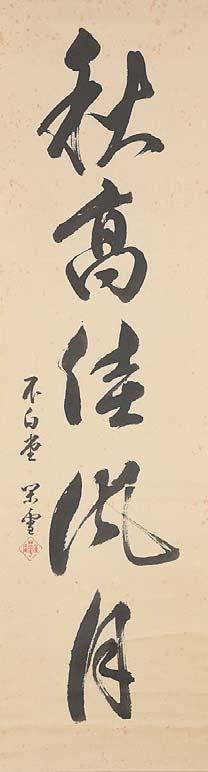 秋高佳風月
不白堂 宗雪